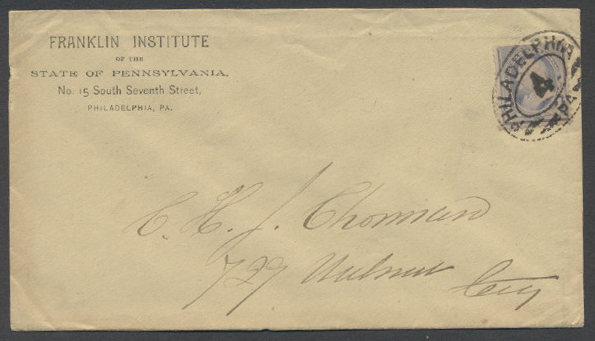 FRANKLIN INSTITUTE
OF THE
STATE OF PENNSYLVANIA,
No. 15 South Seventh Street,
PHILADELPHIA, PA.
PHILADELPHIA PA.
4
C. H. J.
727 Walnut
City